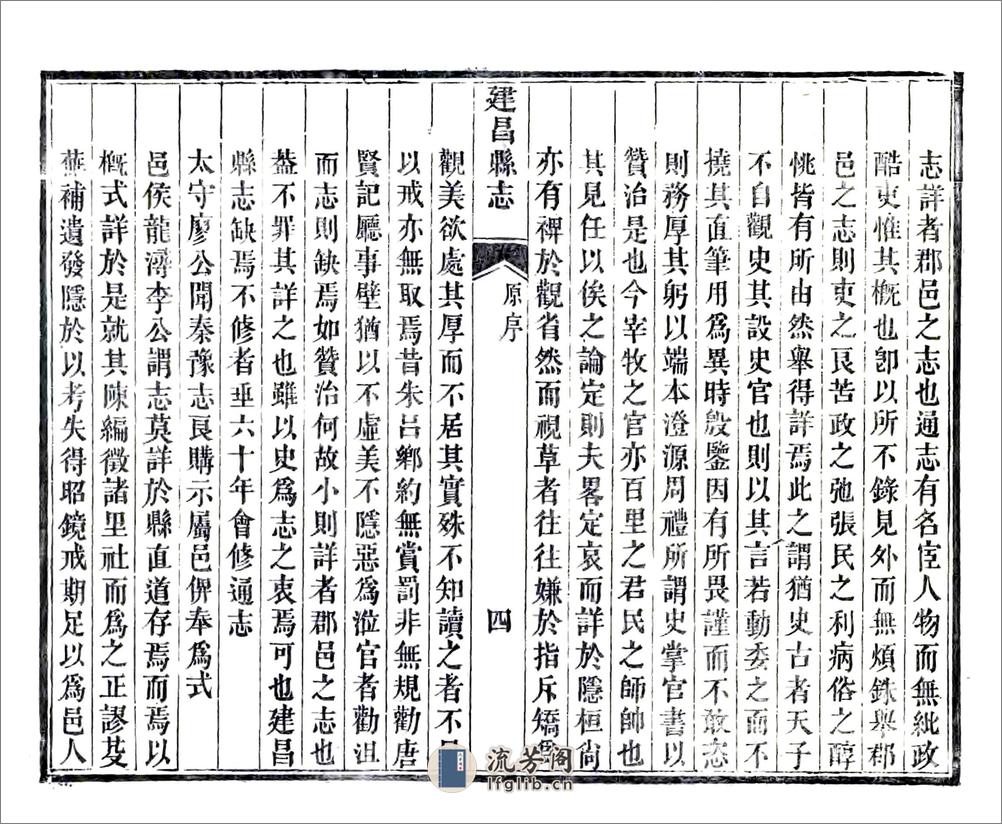 志詳者郡邑之志也通志有名宦人物而無紕政
酷吏惟其概也卽以所不錄見外而無煩銖舉郡
邑之志則吏之良苦政之弛張民之利病俗之醇
恌皆有所由然舉得詳焉此之謂猶史古者天子
不自觀史其設史官也則以其言若動委之而不
撓其直筆用爲異時殷鑒因有所畏謹而不敢恣
則務厚其躬以端本澄源周禮所謂史掌官書以
贊治是也今宰牧之官亦百里之君民之師帥也
其見任以俟之論定則夫畧定哀而詳於隱桓尙
亦有裨於觀省然而視草者往往嫌於指斥矯
建昌縣志
原序
四
觀美欲處其厚而不居其實殊不知讀之者不
以戒亦無取焉昔朱呂鄉約無賞罰非無規勸唐
賢記廳事壁猶以不虛美不隱惡爲涖官者勸沮
而志則缺焉如贊治何故小則詳者郡邑之志也
葢不罪其詳之也雖以史爲志之衷焉可也建昌
縣志缺焉不修者垂六十年會修通志
太守廖公聞秦豫志良購示屬邑俾奉爲式
邑侯龍潯李公謂志莫詳於縣直道存焉而焉以
概式詳於是就其陳編徵諸里社而爲之正謬芟
蕪補遺發隱於以考失得昭鏡戒期足以爲邑人
流芳阁
lfglib.cn